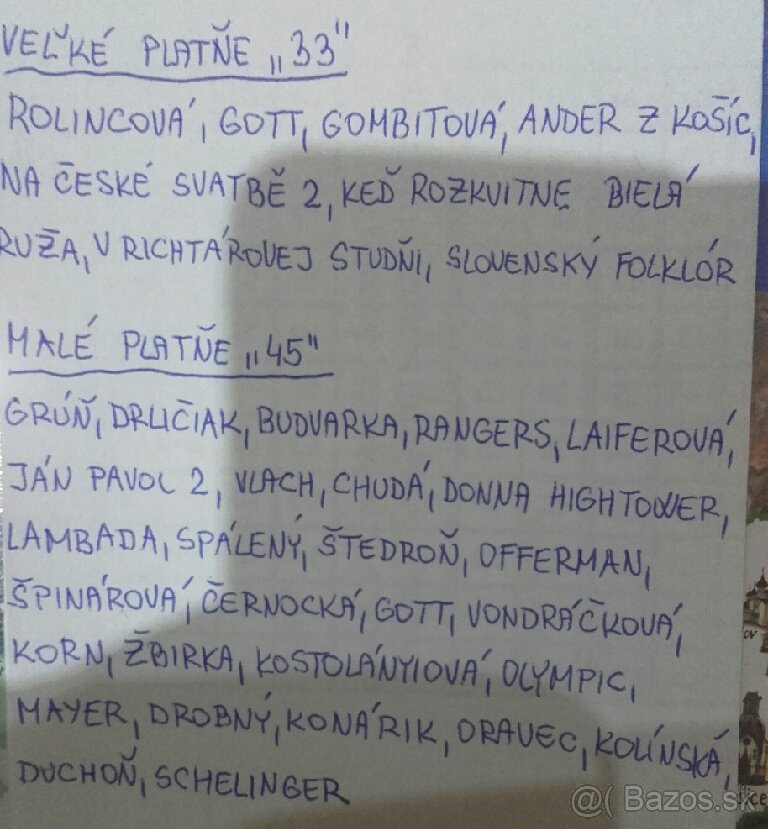 VEĽKÉ PLATŇE „33"
ROLINCOVÁ, GOTT, GOMBITOVÁ, ANDER Z KOŠÍC,
NA ČESKÉ SVATBĚ 2, KEĎ ROZKVITNE BIELÁ
RUŽA, V RICHTÁROVEJ STUDŇI, SLOVENSKÝ FOLKLÓR
MALÉ PLATŇE „45"
GRÚŇ, DRLIČIAK, BUDVARKA, RANGERS, LAIFEROVÁ,
JÁN PAVOL 2, VLACH, CHUDÁ, DONNA HIGHTOWER,
LAMBADA, SPÁLENÝ, ŠTEDROŇ, OFFERMAN,
ŠPINÁROVÁ, ČERNOCKÁ, GOTT, VONDRÁČKOVÁ,
KORN, ŽBIRKA, KOSTOLÁNYIOVÁ, OLYMPIC,
MAYER, DROBNÝ, KONÁRIK, ORAVEC, KOLÍNSKÁ,
DUCHOŇ, SCHELINGER
@( Bazos.sk